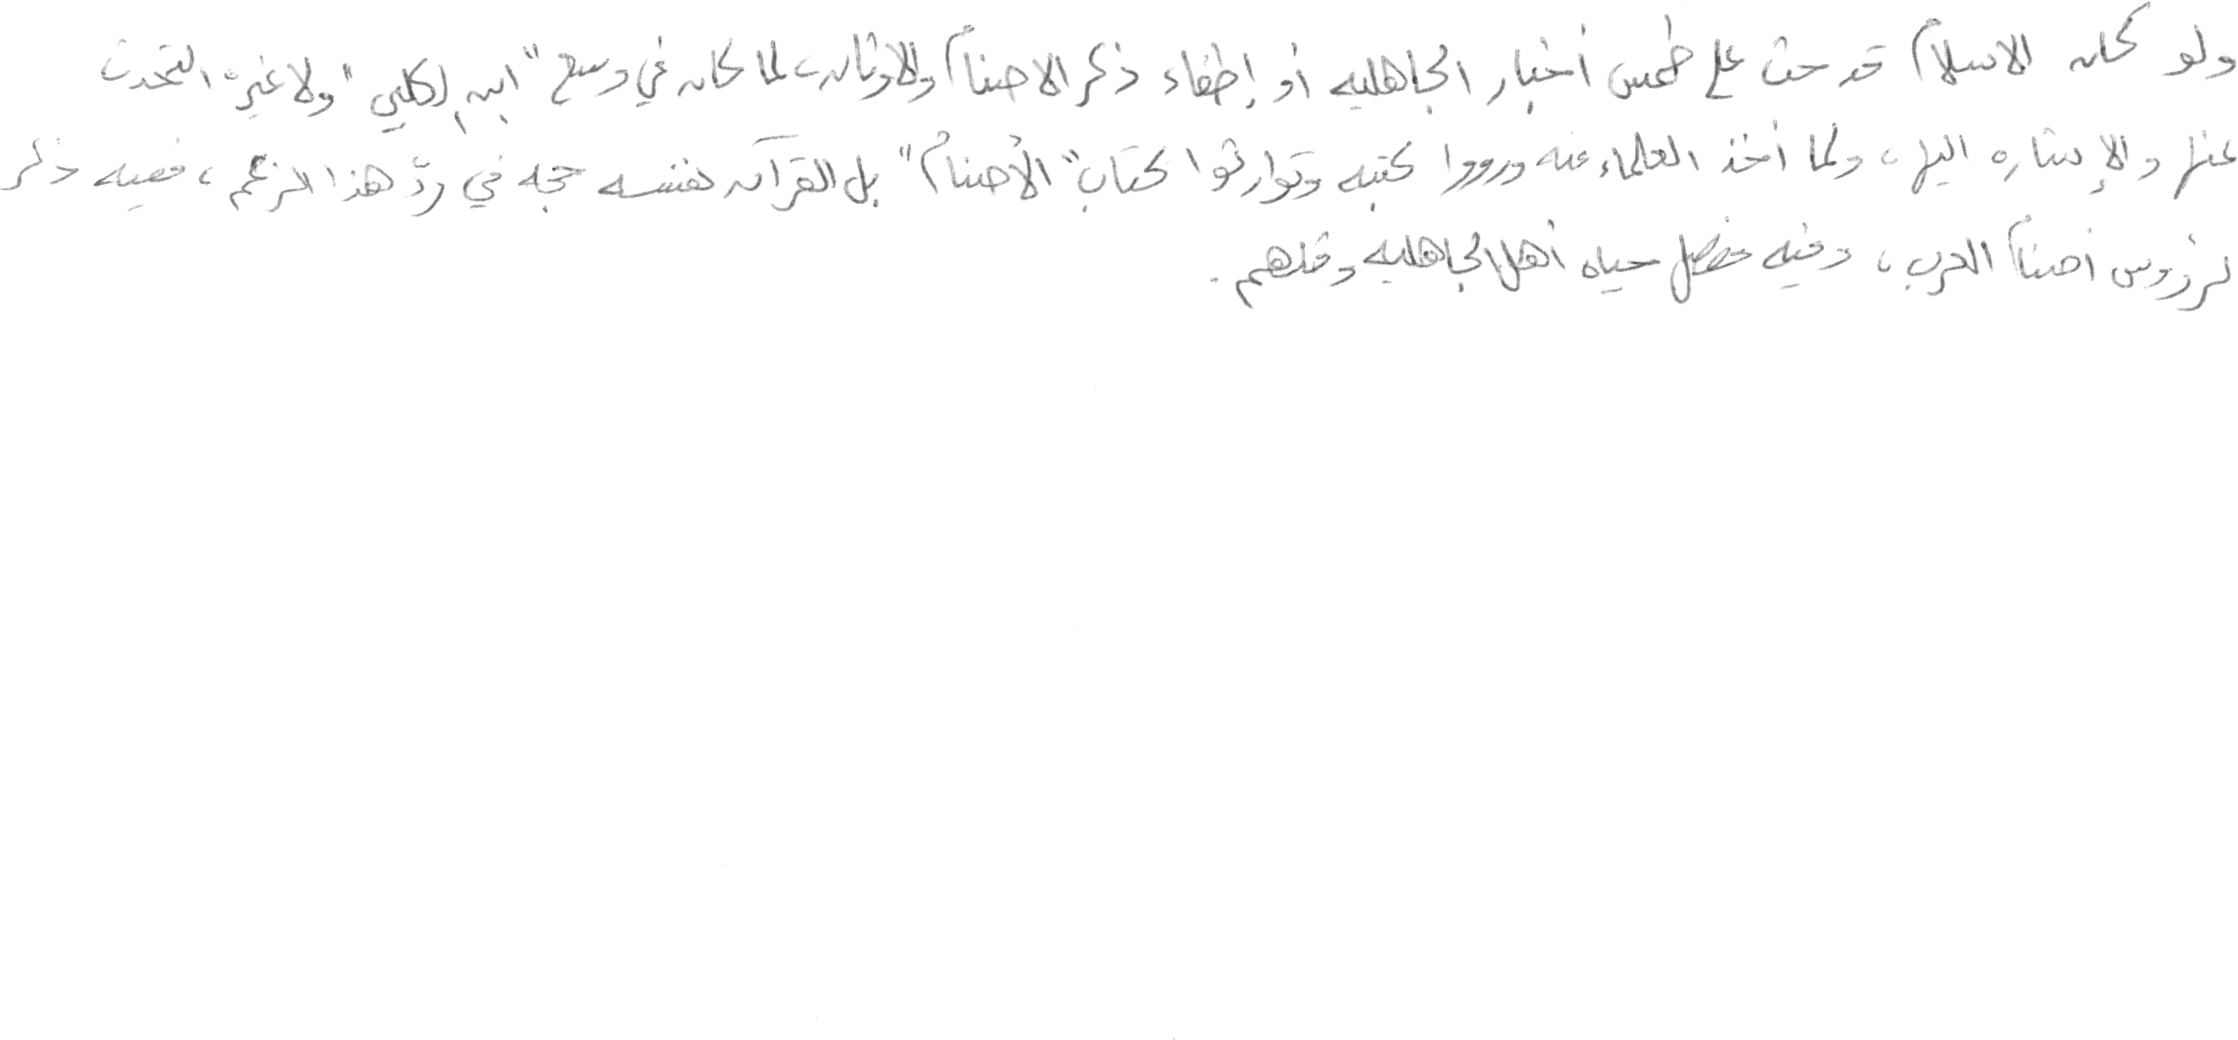 ولو كان الاسلام قد حث على طمس أخبار الجاهليه أو إطفاء ذكر الاصنام والاوثان، لما كان في وسع "ابن الكلبي" ولا غيره التحدث
عنها والإشاره اليها، ولما أخذ العلماء عنه ورووا كتبه وتوارثوا كتاب "الأصنام" بل القرآن نفسه حجه في ردّ هذا الزعم، ففيه ذكر
لرؤوس أصنام العرب، وفيه مفصل حياه أهل الجاهليه